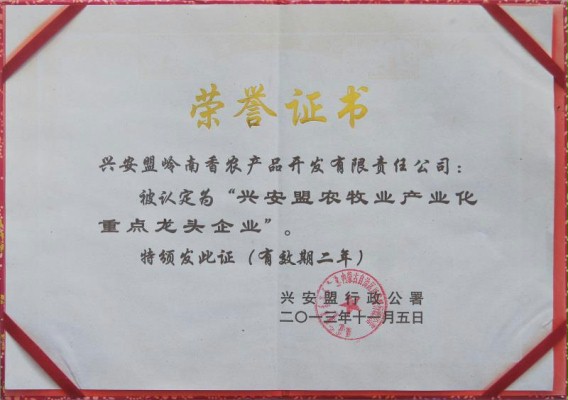 荣誉证书
兴安盟岭南香农产品开发有限责任公司：
被认定为“兴安盟农牧业产业化
重点龙头企业”。
特颁发此证（有效期二年）
兴安盟行政公署
二〇一三年十一月五日